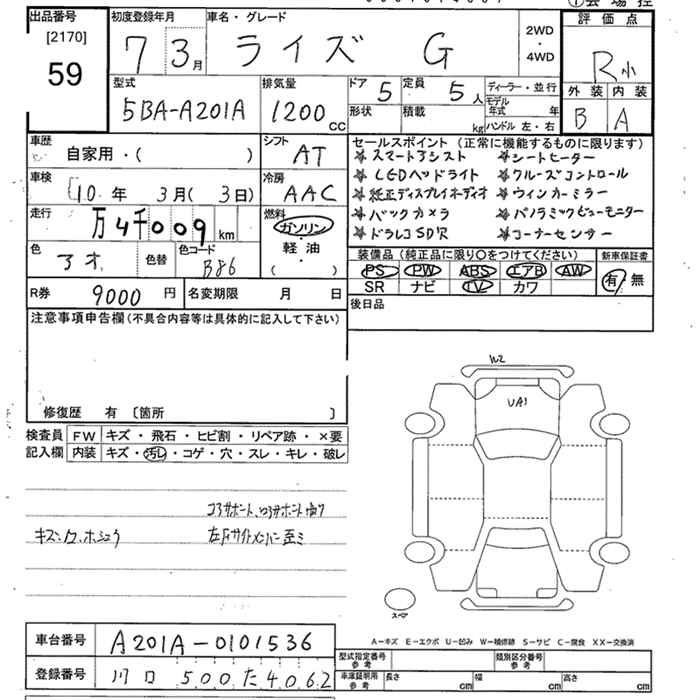 会場控
出品番号
[2170]
59
初度登録年月
7 3月
車名・グレード
ライズ G
2WD
・
4WD
評価点
R小
外装 内装
B A
型式
5BA-A201A
排気量
1200 CC
ドア 5
定員 5 人
形状
積載 kg
ディーラー・並行
モデル年式 年
ハンドル 左・右
車歴
自家用・( )
シフト
AT
車検
10年 3月( 3日)
冷房
AAC
走行
万4千009 km
燃料
ガソリン
・
軽油
( )
色
アオ
色替
色コード
B86
R券 9000 円
名変期限 月 日
セールスポイント (正常に機能するものに限ります)
スマートアシスト
シートヒーター
LEDヘッドライト
クルーズコントロール
純正ディスプレイオーディオ
ウインカーミラー
バックカメラ
パノラミックビューモニター
ドラレコSD穴
コーナーセンサー
装備品 (純正品に限り〇をつけてください)
新車保証書
PS PW ABS エアB AW
SR ナビ TV カワ
有・無
後日品
注意事項申告欄(不具合内容等は具体的に記入して下さい)
修復歴 有 〔箇所 〕
検査員記入欄
FW キズ・飛石・ヒビ割・リペア跡・×要
内装 キズ・汚レ・コゲ・穴・スレ・キレ・破レ
W2
UA1
スペア
A－キズ E－エクボ U－凹み W－補修跡 S－サビ C－腐食 XX－交換済
車台番号 A201A-0101536
登録番号 川口 500 た 4062
型式指定番号 参考
類別区分番号 参考
車庫証明用 参考 長さ cm 幅 cm 高さ cm